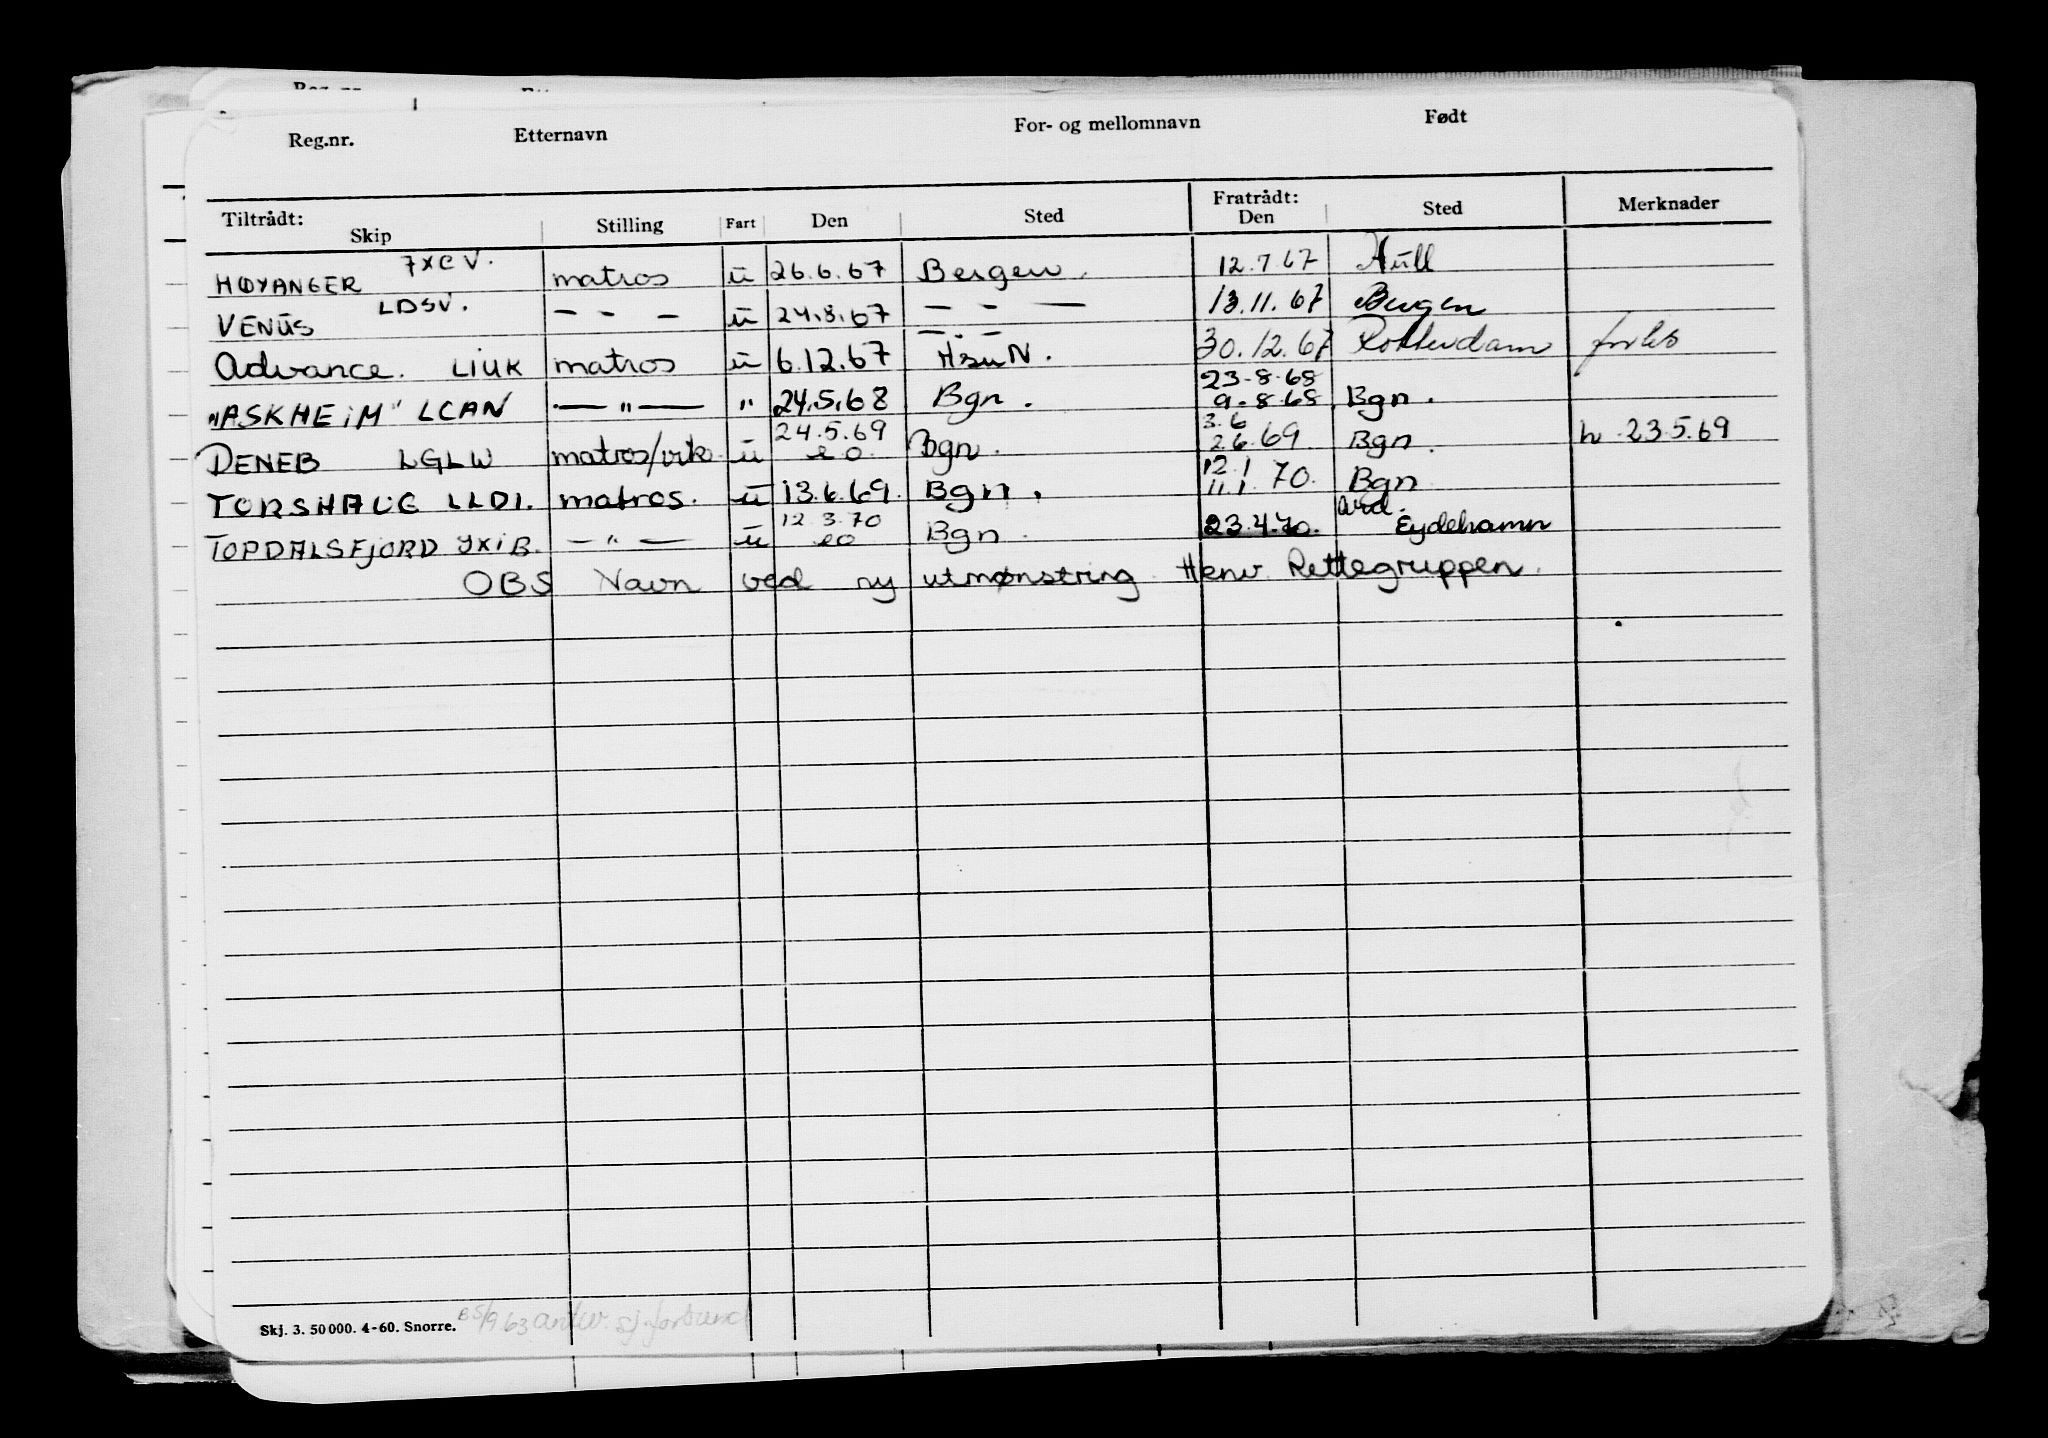 Reg.nr. Etternavn For- og mellomnavn Født
Tiltrådt: Skip Stilling Fart Den Sted Fratrådt: Den Sted Merknader
HØYANGER 7XCV. matros u 26.6.67 Bergen. 12.7.67 Hull
VENUS LDSV. — - — u 24.8.67 — - — 13.11.67 Bergen
Advance. LIUK matros u 6.12.67 HsuN. 30.12.67 Rotterdam forlis
"ASKHEIM" LCAN — " — " 24.5.68 Bgn. 23-8-68 9-8-68 Bgn.
DENEB LGLW matros/vik u 24.5.69 eo. Bgn. 3.6 2.6.69 Bgn. h. 23.5.69
TORSHAUG LLDI. matros. u 13.6.69. Bgn. 12.1 11.1.70. Bgn
TOPDALSFJORD JXIB. — " — u 12.3.70 eo Bgn. 23.4.70. ard. Eydehamn
OBS Navn ved ny utmønstring. Henv. Rettegruppen.
Skj. 3. 50000. 4-60. Snorre. B 5/9 63 antw. sj.forbund